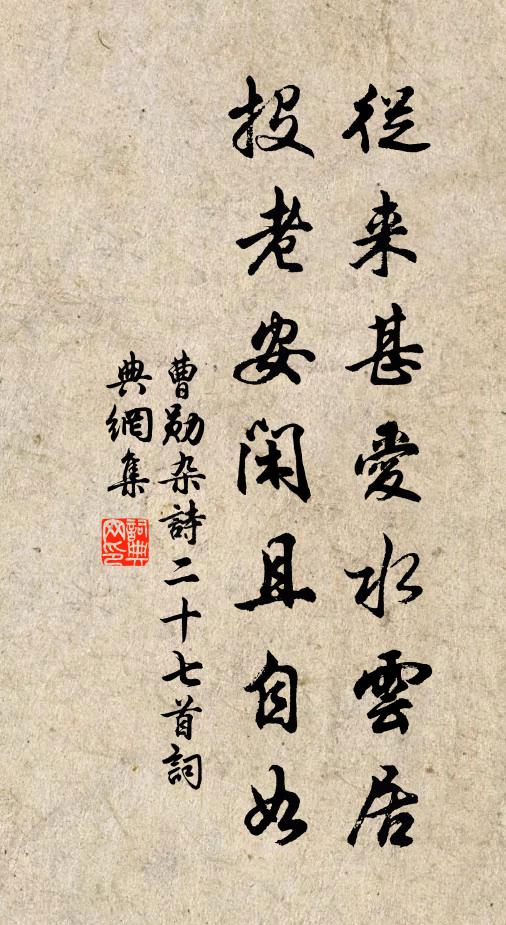 從来甚愛水雲居
投老安閑且自如
曹勛杂詩二十七首詞
典網集
詞典网印